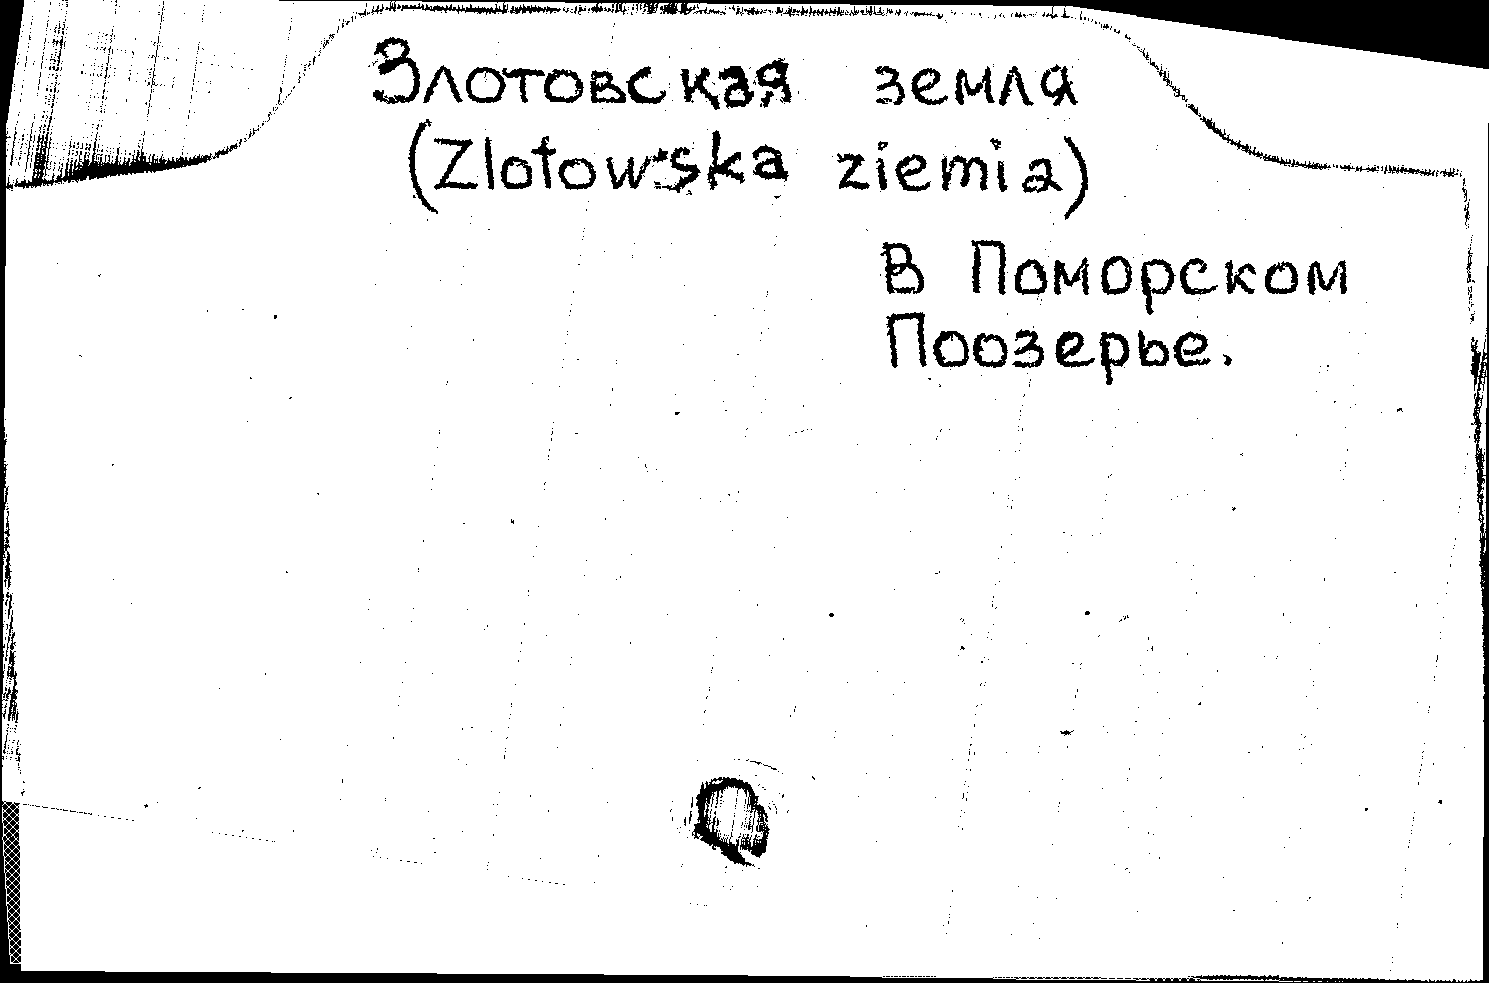 Злотовская земля
(Zlotowska ziemia)
В Поморском
Поозерье.